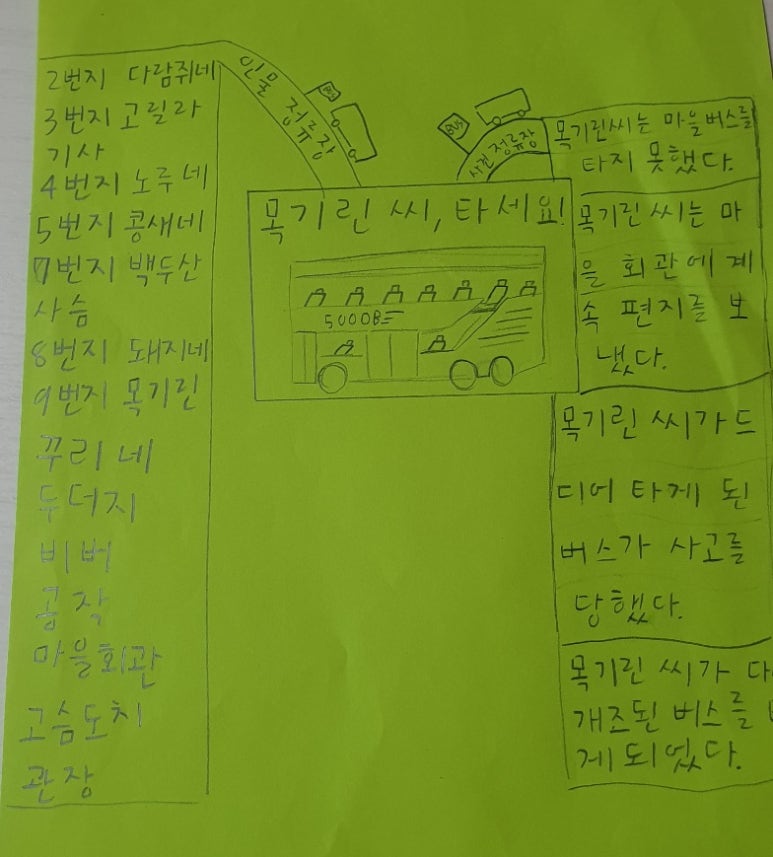 인물 정류장
BUS
2번지 다람쥐네
3번지 고릴라
기사
4번지 노루네
5번지 콩새네
7번지 백두산
사슴
8번지 돼지네
9번지 목기린
꾸리네
두더지
비버
공작
마을회관
고슴도치
관장
목기린 씨, 타세요!
5000B
BUS
사건 정류장
목기린씨는 마을버스를
타지 못했다.
목기린 씨는 마
을 회관에 계
속 편지를 보
냈다.
목기린 씨가 드
디어 타게 된
버스가 사고를
당했다.
목기린 씨가 다
개조된 버스를
게 되었다.